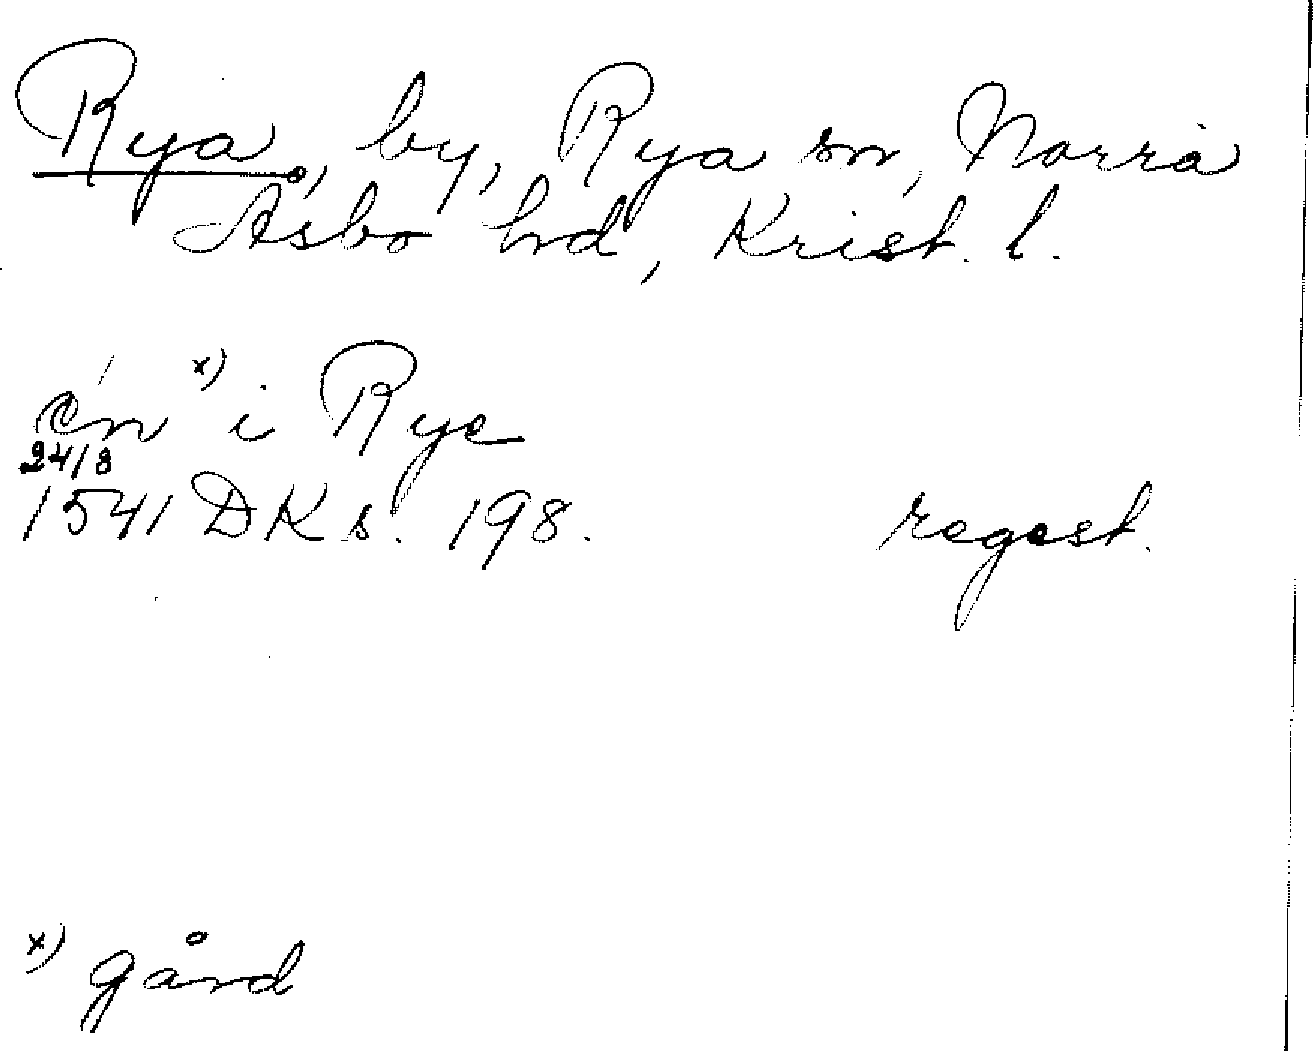 Rya, by, Rya sn, Norra
Åsbo hd, Krist. l.
én x) i Rye
24/8
1541 DK s. 198. regest.
x) gård